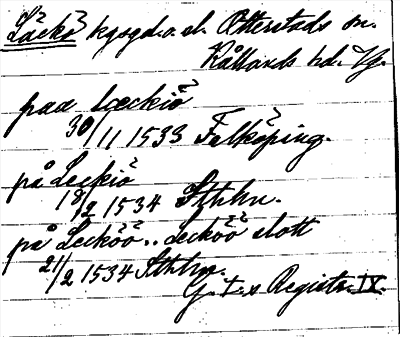 Läckö kgsgd. o. sl. Otterstads sn.
Kållands hd. Vg.
paa Læckiö
30/11 1533 Falköping.
på Leckiö
18/2 1534 Sthlm.
på Lecköö.. Lecköö slott
21/2 1534 Sthlm.
G. I:s Registr. IX.